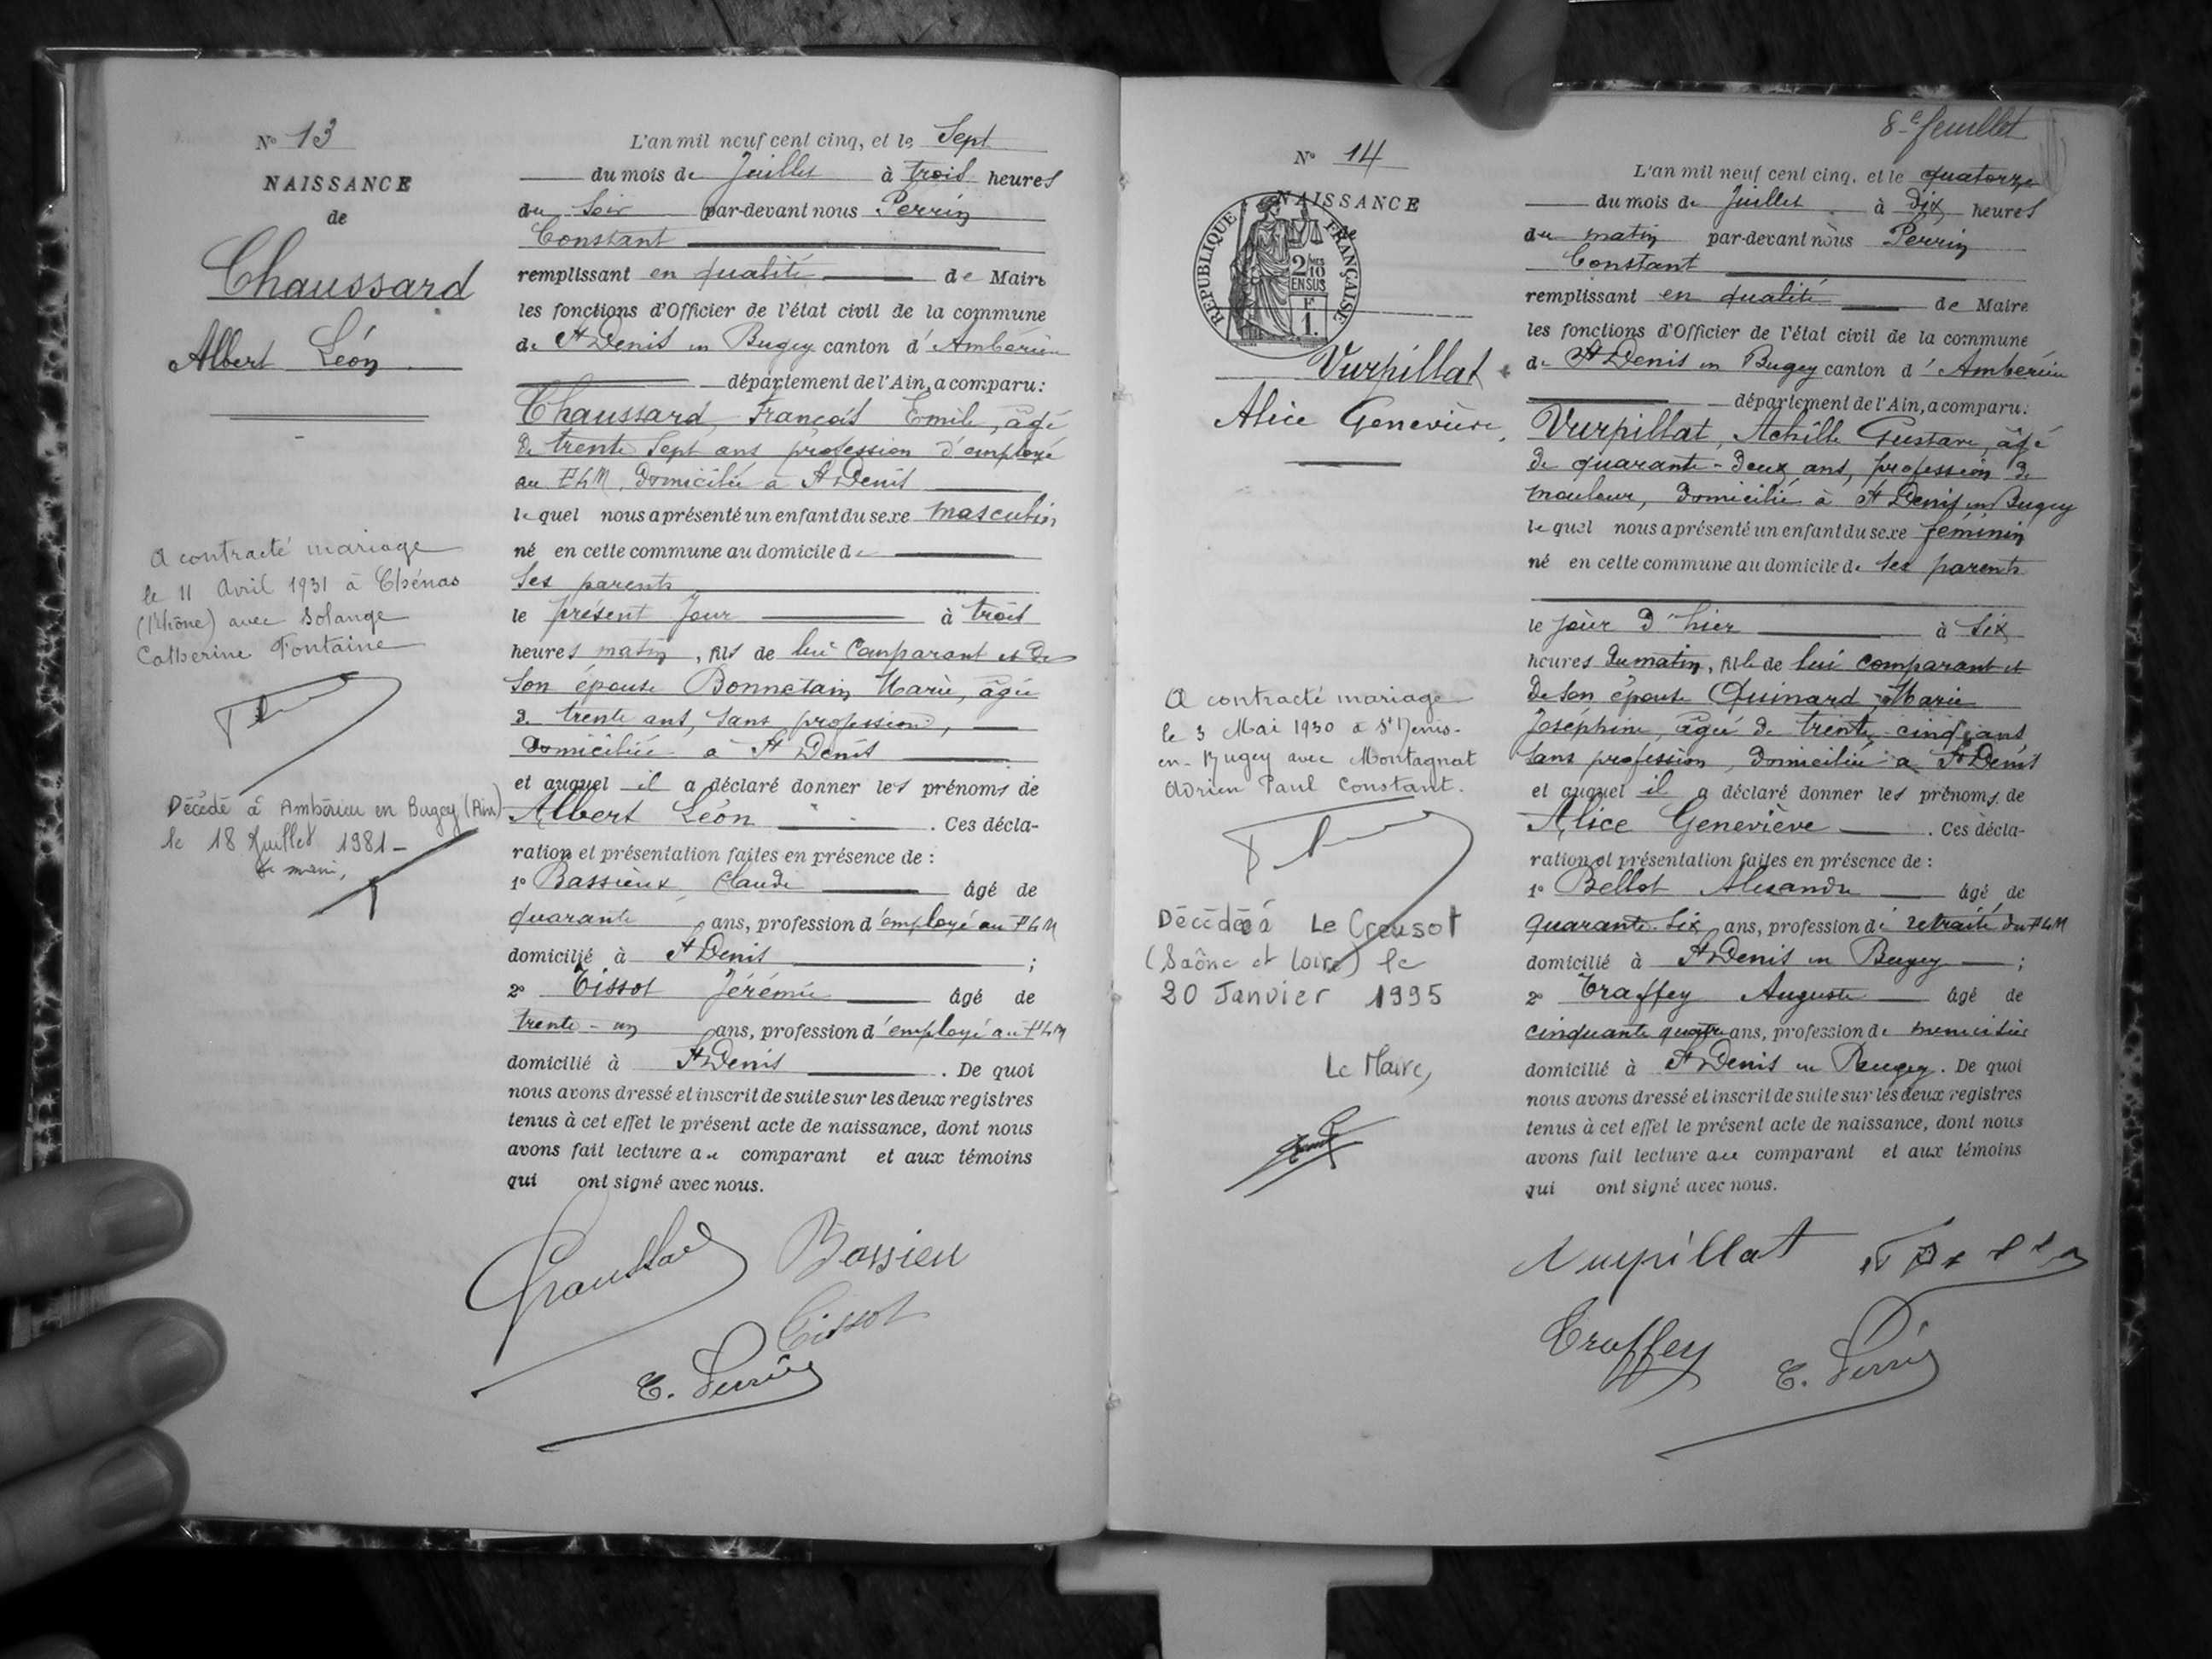 N° 13
NAISSANCE
de
Chaussard
Albert Léon
A contracté mariage
le 11 Avril 1931 à Chénas
(Rhône) avec Solange
Catherine Fontaine
Décédé à Ambérieu en Bugey (Ain)
le 18 Juillet 1981 -
L'an mil neuf cent cinq, et le Sept
du mois de Juillet à trois heures
du soir par-devant nous Perrin
Constant
remplissant en qualité de Maire
les fonctions d'Officier de l'état civil de la commune
de St Denis en Bugey canton d'Ambérieu
département de l'Ain, a comparu:
Chaussard, François Emile, âgé
de trente Sept ans profession d'employé
au PLM. domicilié à St Denis
lequel nous a présenté un enfant du sexe masculin
né en cette commune au domicile de
ses parents
le présent jour à trois
heures matin, fils de lui Comparant et de
son épouse Bonnetain Marie, âgée
de trente ans, sans profession,
domiciliée à St Denis
et auquel il a déclaré donner les prénoms de
Albert Léon . Ces décla-
ration et présentation faites en présence de :
1° Bassieux Claude âgé de
quarante ans, profession d'employé au PLM
domicilié à St Denis ;
2° Tissot Jérémie âgé de
trente-un ans, profession d'employé au PLM
domicilié à St Denis . De quoi
nous avons dressé et inscrit de suite sur les deux registres
tenus à cet effet le présent acte de naissance, dont nous
avons fait lecture au comparant et aux témoins
qui ont signé avec nous.
Chaussard Bassieu
Tissot
C. Perrin
8e feuillet
N° 14
NAISSANCE
de
RÉPUBLIQUE FRANÇAISE
2/10 MES
EN SUS
F.
1.
Vurpillat
Alice Geneviève
A contracté mariage
le 3 Mai 1930 à St Denis-
en-Bugey avec Montagnat
Adrien Paul Constant.
Décédée à Le Creusot
(Saône et Loire) le
20 Janvier 1995
Le Maire,
L'an mil neuf cent cinq, et le quatorze
du mois de Juillet à dix heures
du matin par-devant nous Perrin
Constant
remplissant en qualité de Maire
les fonctions d'Officier de l'état civil de la commune
de St Denis en Bugey canton d'Ambérieu
département de l'Ain, a comparu:
Vurpillat, Achille Gustave, âgé
de quarante-deux ans, profession de
mouleur, domicilié à St Denis en Bugey
lequel nous a présenté un enfant du sexe féminin
né en cette commune au domicile de ses parents
le jour d'hier à six
heures du matin, fille de lui comparant et
de son épouse Quinard, Marie
Joséphine, âgée de trente-cinq ans
sans profession, domiciliée à St Denis
et auquel il a déclaré donner les prénoms de
Alice Geneviève . Ces décla-
ration et présentation faites en présence de :
1° Bellot Alexandre âgé de
quarante-six ans, profession de retraité du PLM
domicilié à St Denis en Bugey ;
2° Traffey Auguste âgé de
cinquante quatre ans, profession de
domicilié à St Denis en Bugey. De quoi
nous avons dressé et inscrit de suite sur les deux registres
tenus à cet effet le présent acte de naissance, dont nous
avons fait lecture au comparant et aux témoins
qui ont signé avec nous.
Vurpillat
Traffey C. Perrin